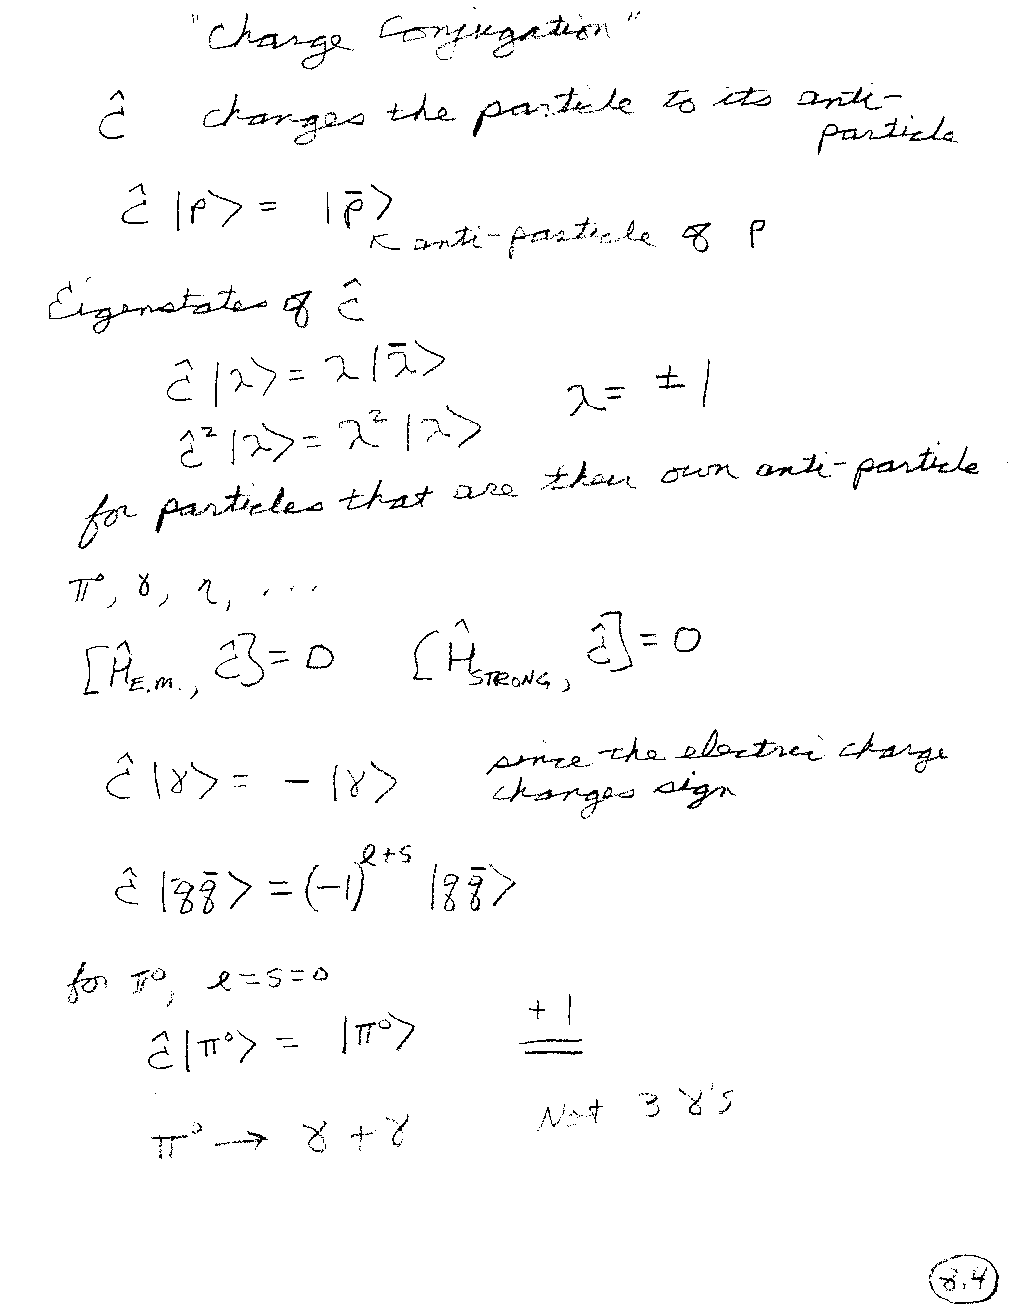 "Charge Conjugation"
ĉ changes the particle to its anti-
particle
ĉ |p> = |p̄>
↖ anti-particle of p
Eigenstates of ĉ
ĉ |λ> = λ |λ̄>
λ = ± 1
ĉ² |λ> = λ² |λ>
for particles that are their own anti-particle
π⁰, γ, η, ...
[Ĥ_E.M., ĉ] = 0 [Ĥ_STRONG, ĉ] = 0
ĉ |γ> = - |γ> since the electric charge
changes sign
ĉ |qq̄> = (-1)^(l+s) |qq̄>
for π⁰, l = s = 0
ĉ |π⁰> = |π⁰> +1
π⁰ → γ + γ Not 3 γ's
8.4